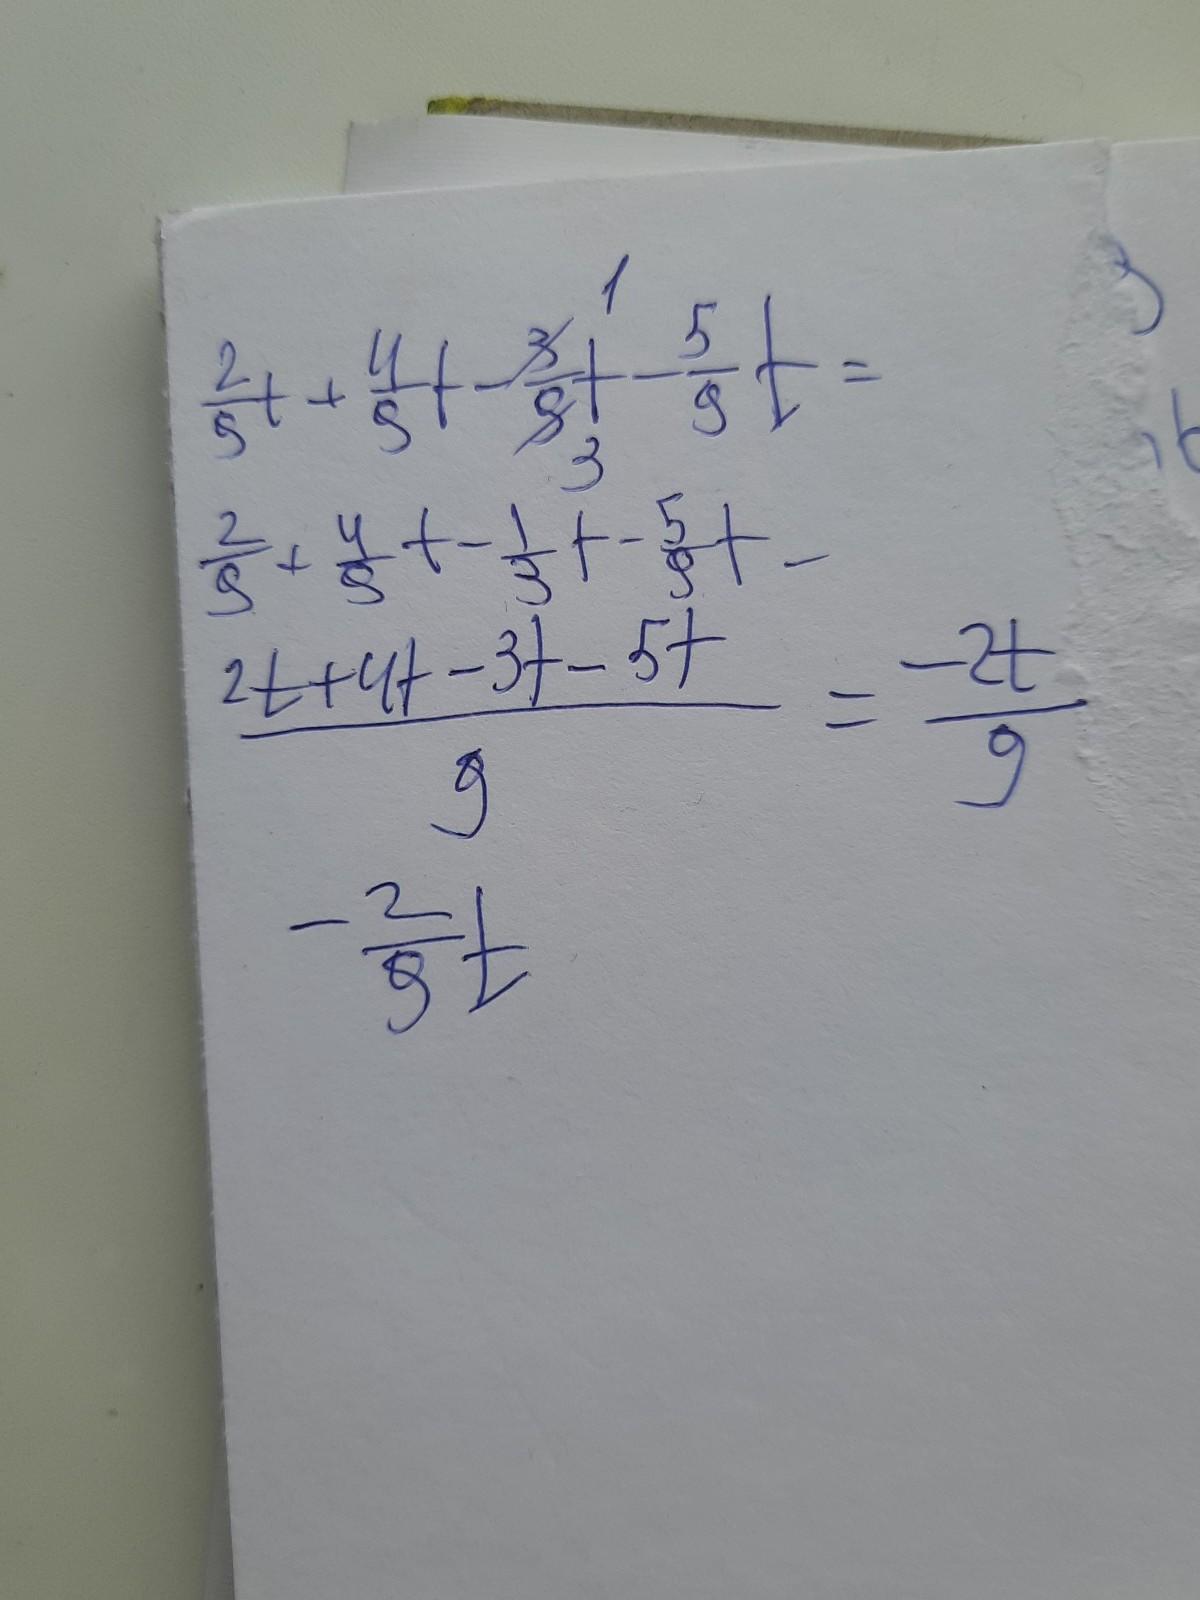 2/9 t + 4/9 t - 3/9 t - 5/9 t =
1
3
2/9 + 4/9 t - 1/3 t - 5/9 t -
(2t + 4t - 3t - 5t)/9 = -2t/9
- 2/9 t